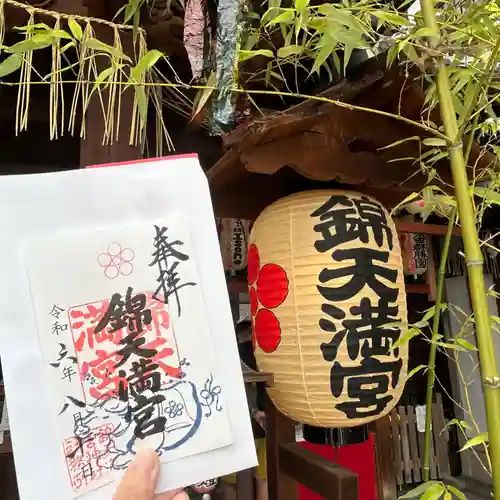 奉拝
錦天満宮
令和六年八月十
錦天満宮
錦天満宮